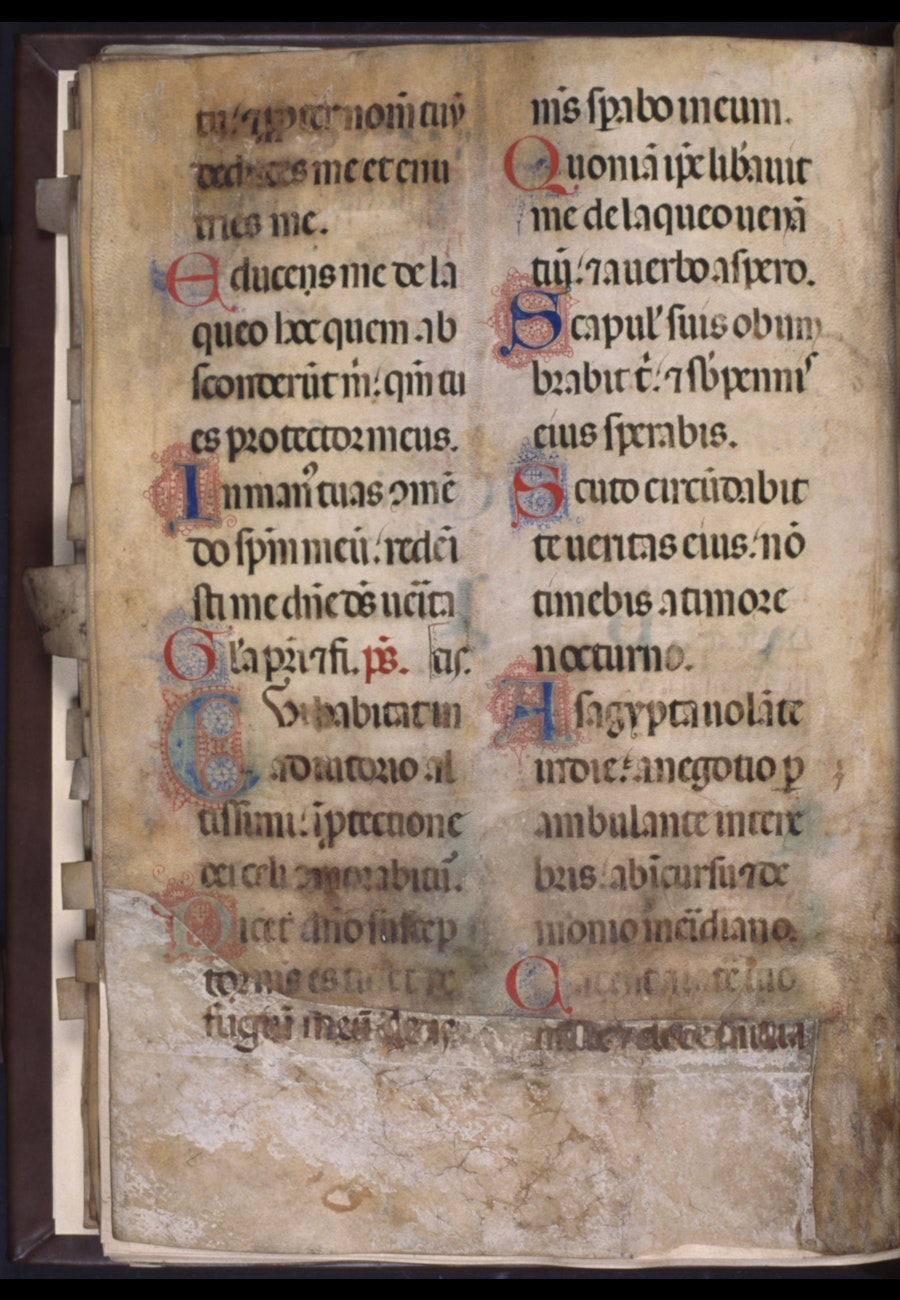 tu: ⁊ ꝓpter nom̄ tuū
deduces me et enu
tries me.
Educens me de la
queo hoc quem ab
sconderūt m̄: qm̄ tu
es protector meus.
In man᷒ tuas ↄmē
do sp̄m meū: redēi
sti me dn̄e ds̄ ueīta
Gl'a pr̄i ⁊ fi. ps̄. tis.
Qui habitat in
adiutorio al
tissimi: ī ꝓtectione
dei celi ↄmorabitū.
Dicet dn̄o suscep
tor m̄s es tu et re
fugiū meū
m̄s sꝑabo in eum.
Quoniā ip̄e lib̄auit
me de laqueo uenā
tiū: ⁊ a uerbo aspero.
Scapul' suis obum
brabit t̄: ⁊ sb̄ penni᷒
eius sperabis.
Scuto circūdabit
te ueritas eius: nō
timebis a timore
nocturno.
A sagypta uolāte
in die: a negotio ꝑ
ambulante in tene
bris: ab īcursu ⁊ de
monio meīdiano.
Cadent a latē tuo
mille ⁊ dece milia